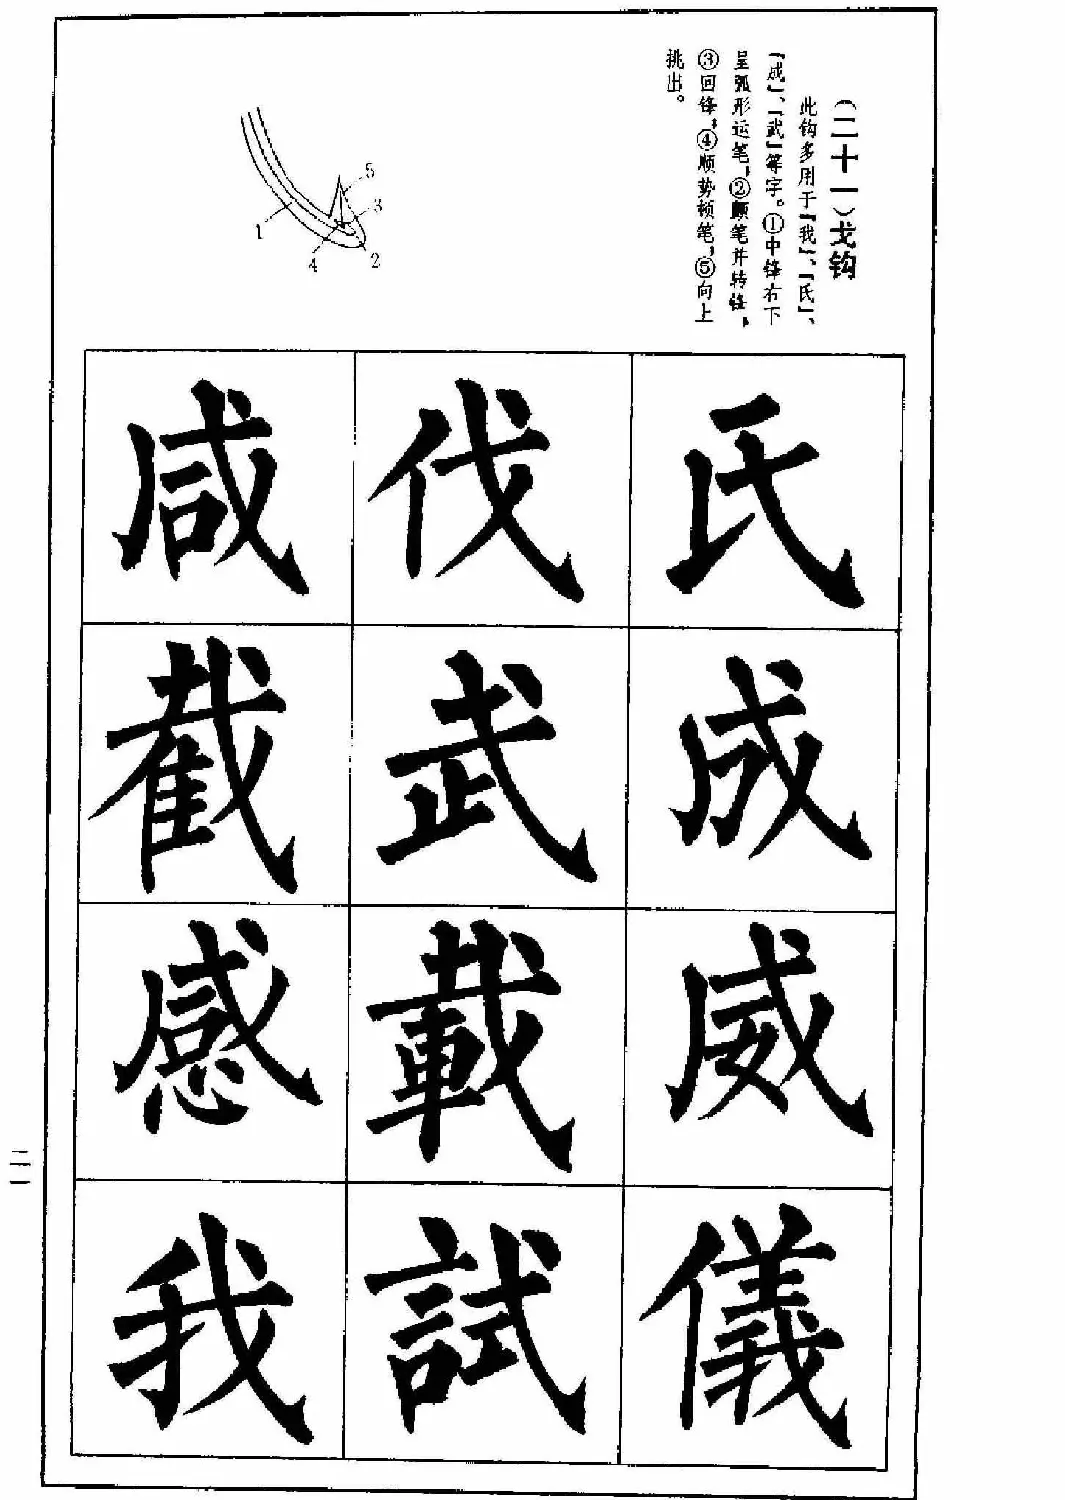 (二十一)戈钩
此钩多用于『我』、『氏』、
『成』、『武』等字。①中锋右下
呈弧形运笔,②顺笔并转锋,
③回锋,④顺势顿笔,⑤向上
挑出。
5
3
1
4
2
氏
成
威
儀
伐
武
載
試
咸
截
感
我
二一